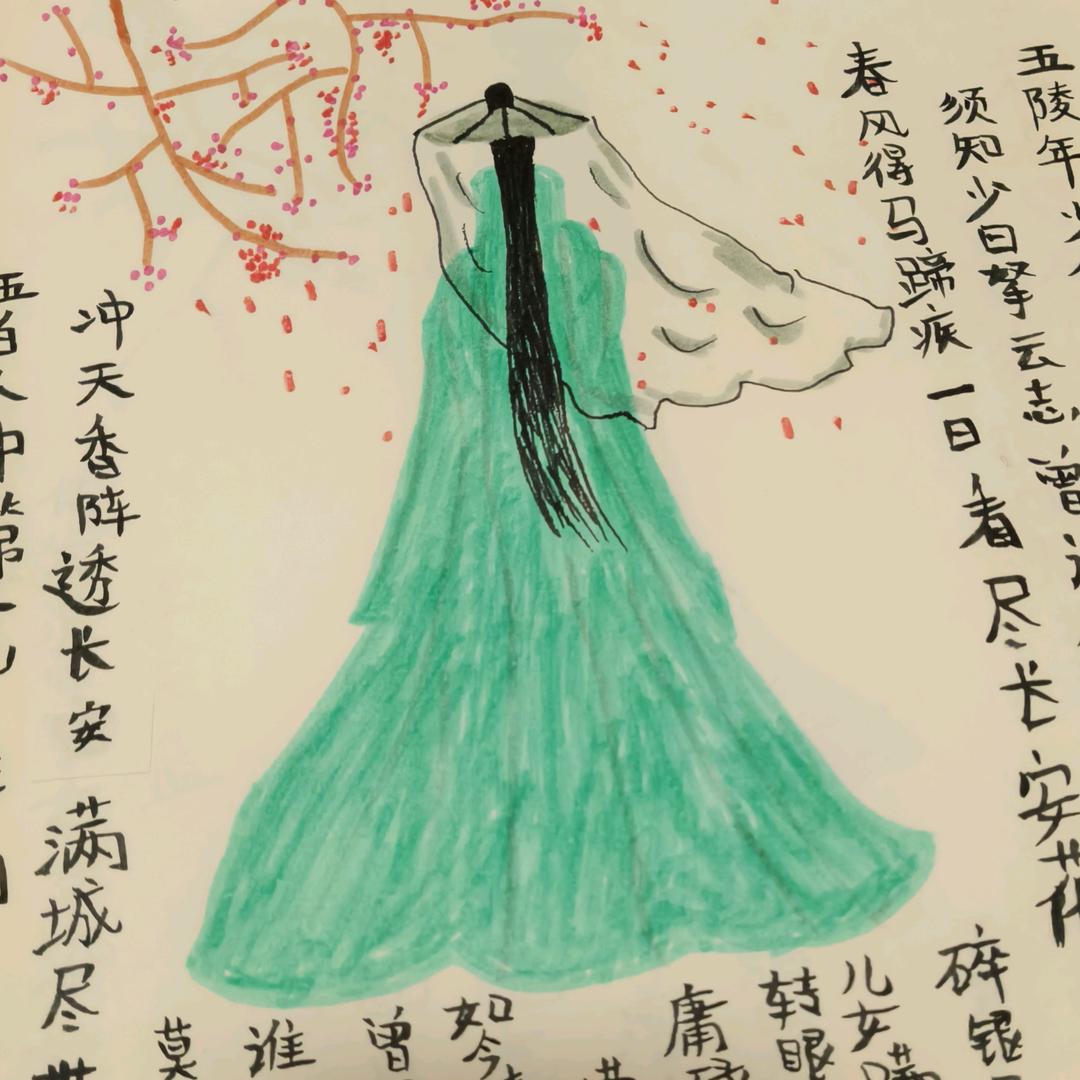 五陵年
须知少日拏云志 曾
春风得马蹄疾 一日看尽长安花
碎银
儿女
转眼
庸
如今
曾
谁
莫
冲天香阵透长安 满城尽
中第一